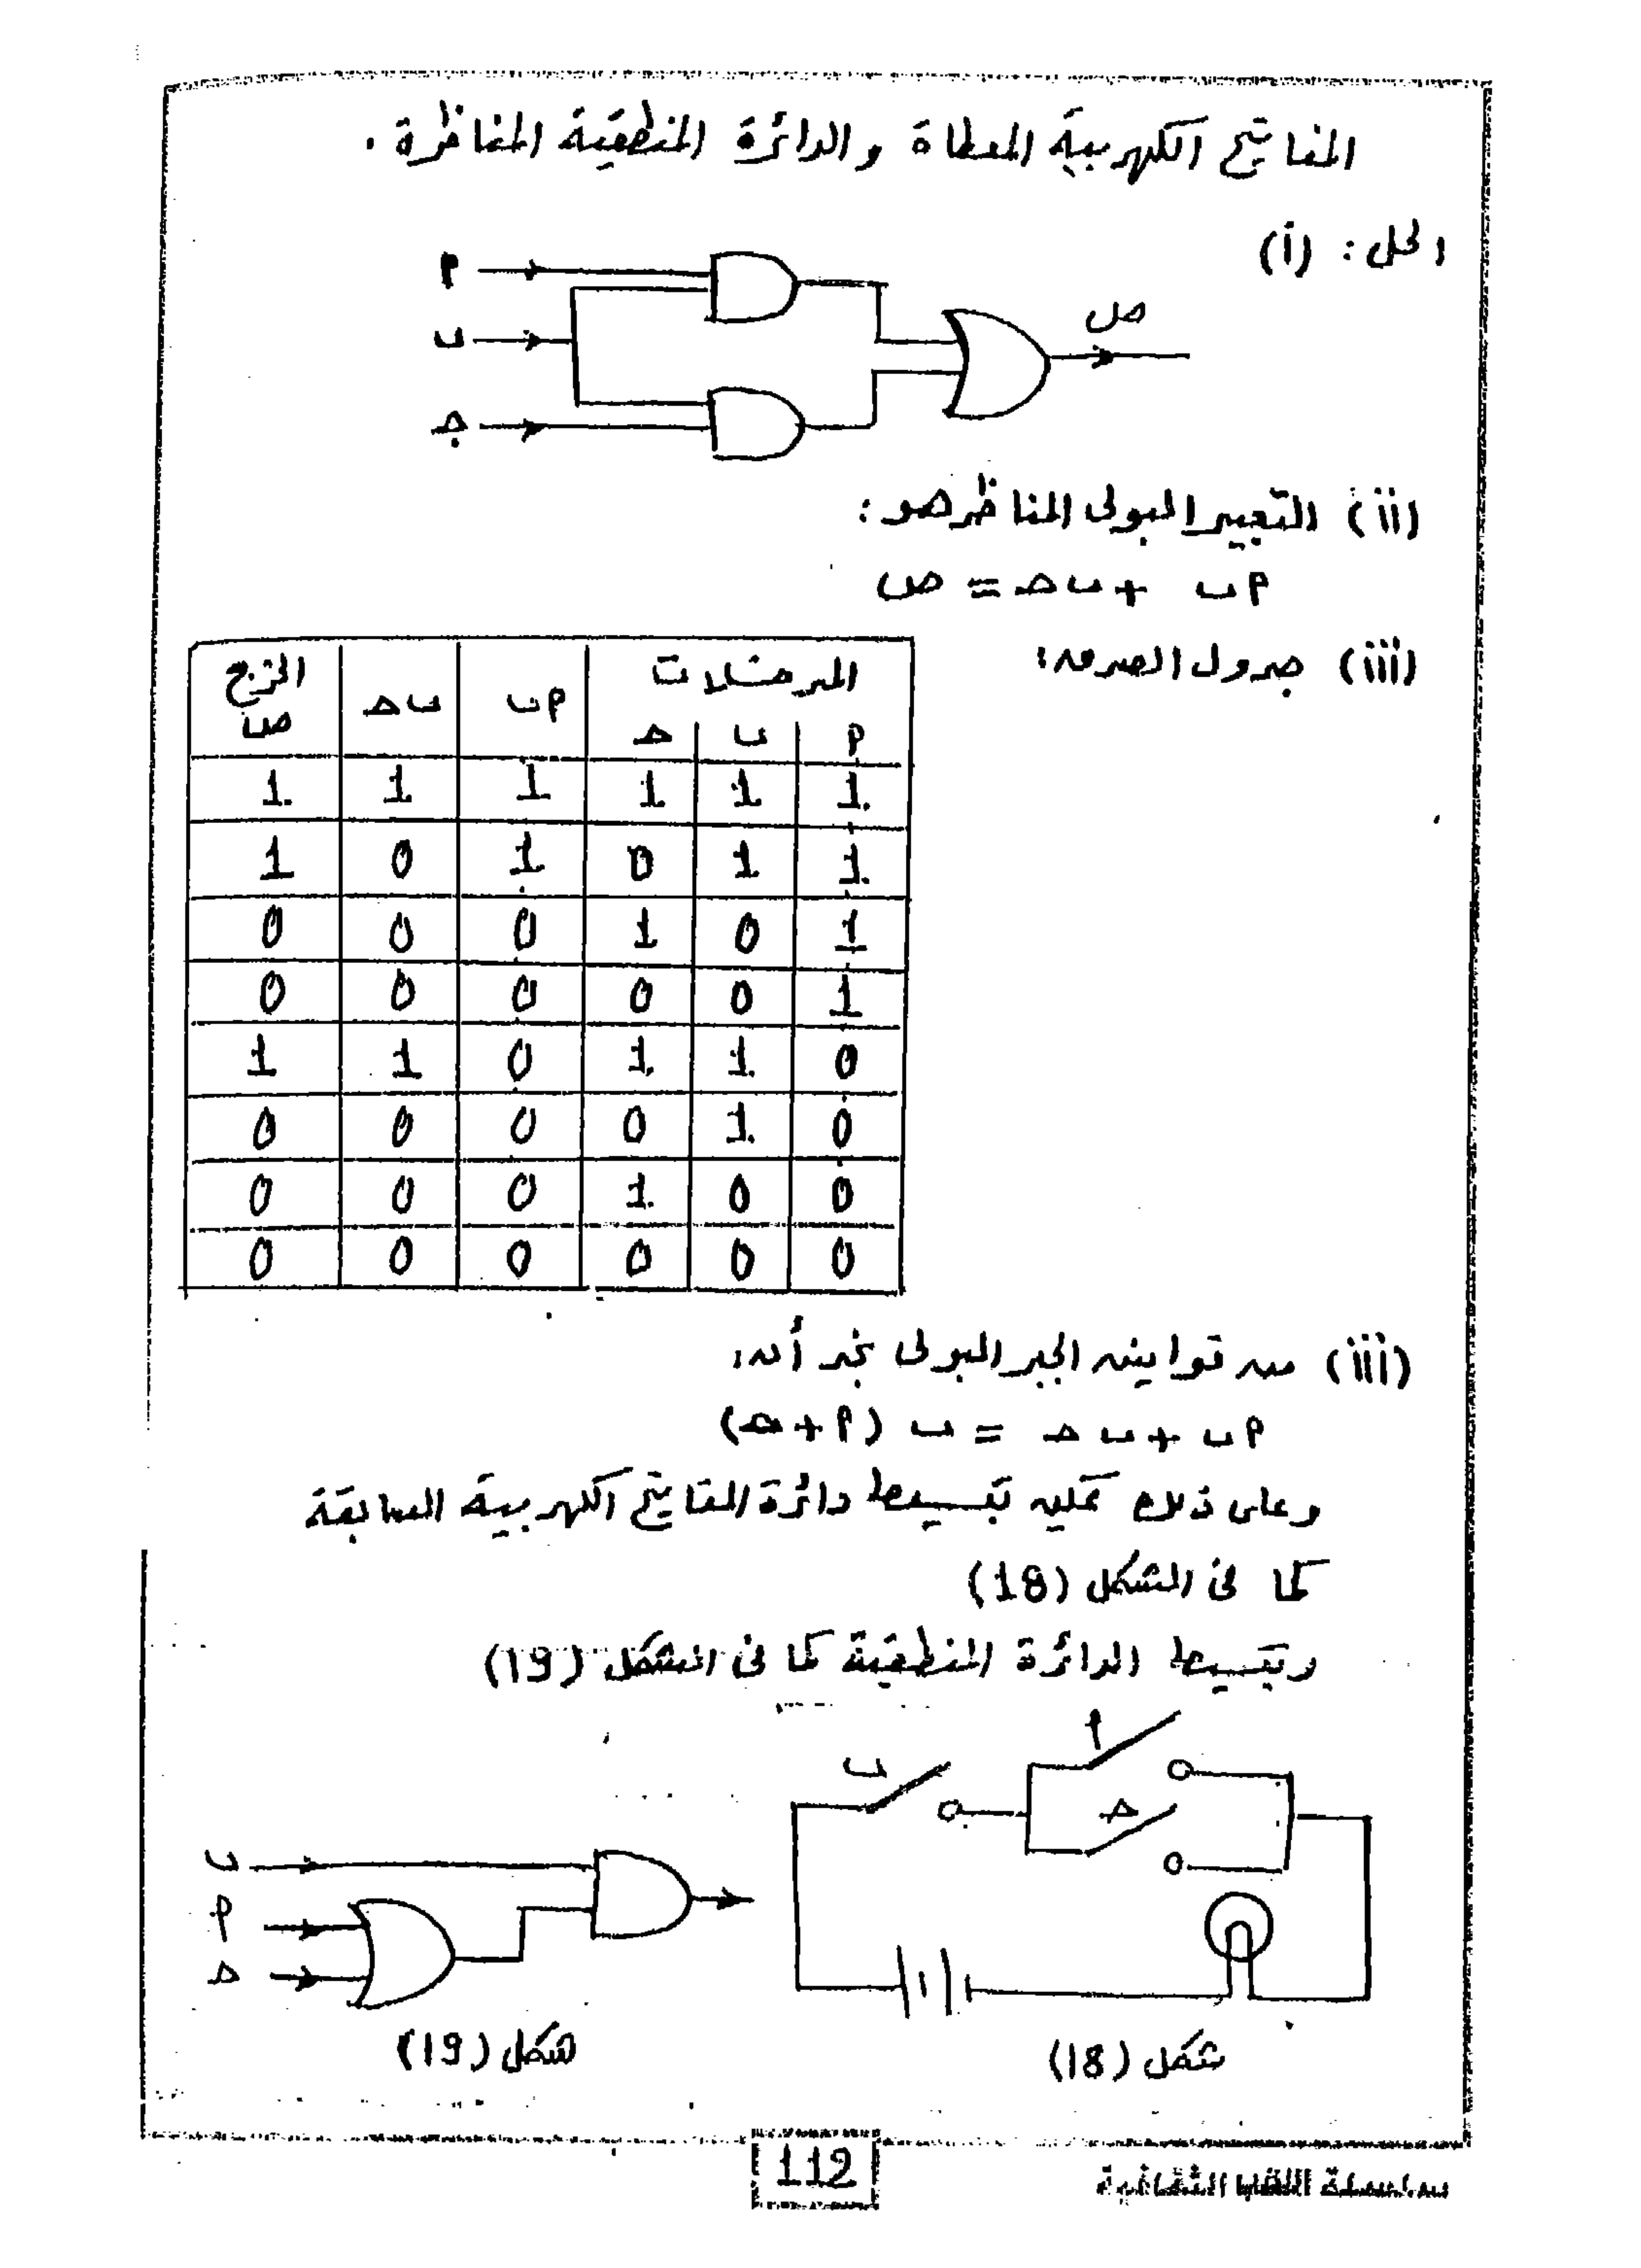 المفاتيح الكهربية المعطاة والدائرة المنطقية المناظرة .
الحل : (i)
م
ب
جـ
ص
(ii) التعبير البولى المناظر هو :
م ب + ب حـ = ص
(iii) جدول الصدق :
المدخلات م ب ب حـ الخرج ص
م ب حـ
1 1 1 1 1 1
1 1 0 1 0 1
1 0 1 0 0 0
1 0 0 0 0 0
0 1 1 0 1 1
0 1 0 0 0 0
0 0 1 0 0 0
0 0 0 0 0 0
(iii) من قوانين الجبر البولى نجد أن :
م ب + ب حـ = ب (م + حـ)
وعلى ذلك يمكن تبسيط دائرة المفاتيح الكهربية السابقة
كما فى الشكل (18)
وتبسيط الدائرة المنطقية كما فى الشكل (19)
م
ب
حـ
ب
م
حـ
شكل (18)
شكل (19)
112
سلسلة اللقايا الثقافية